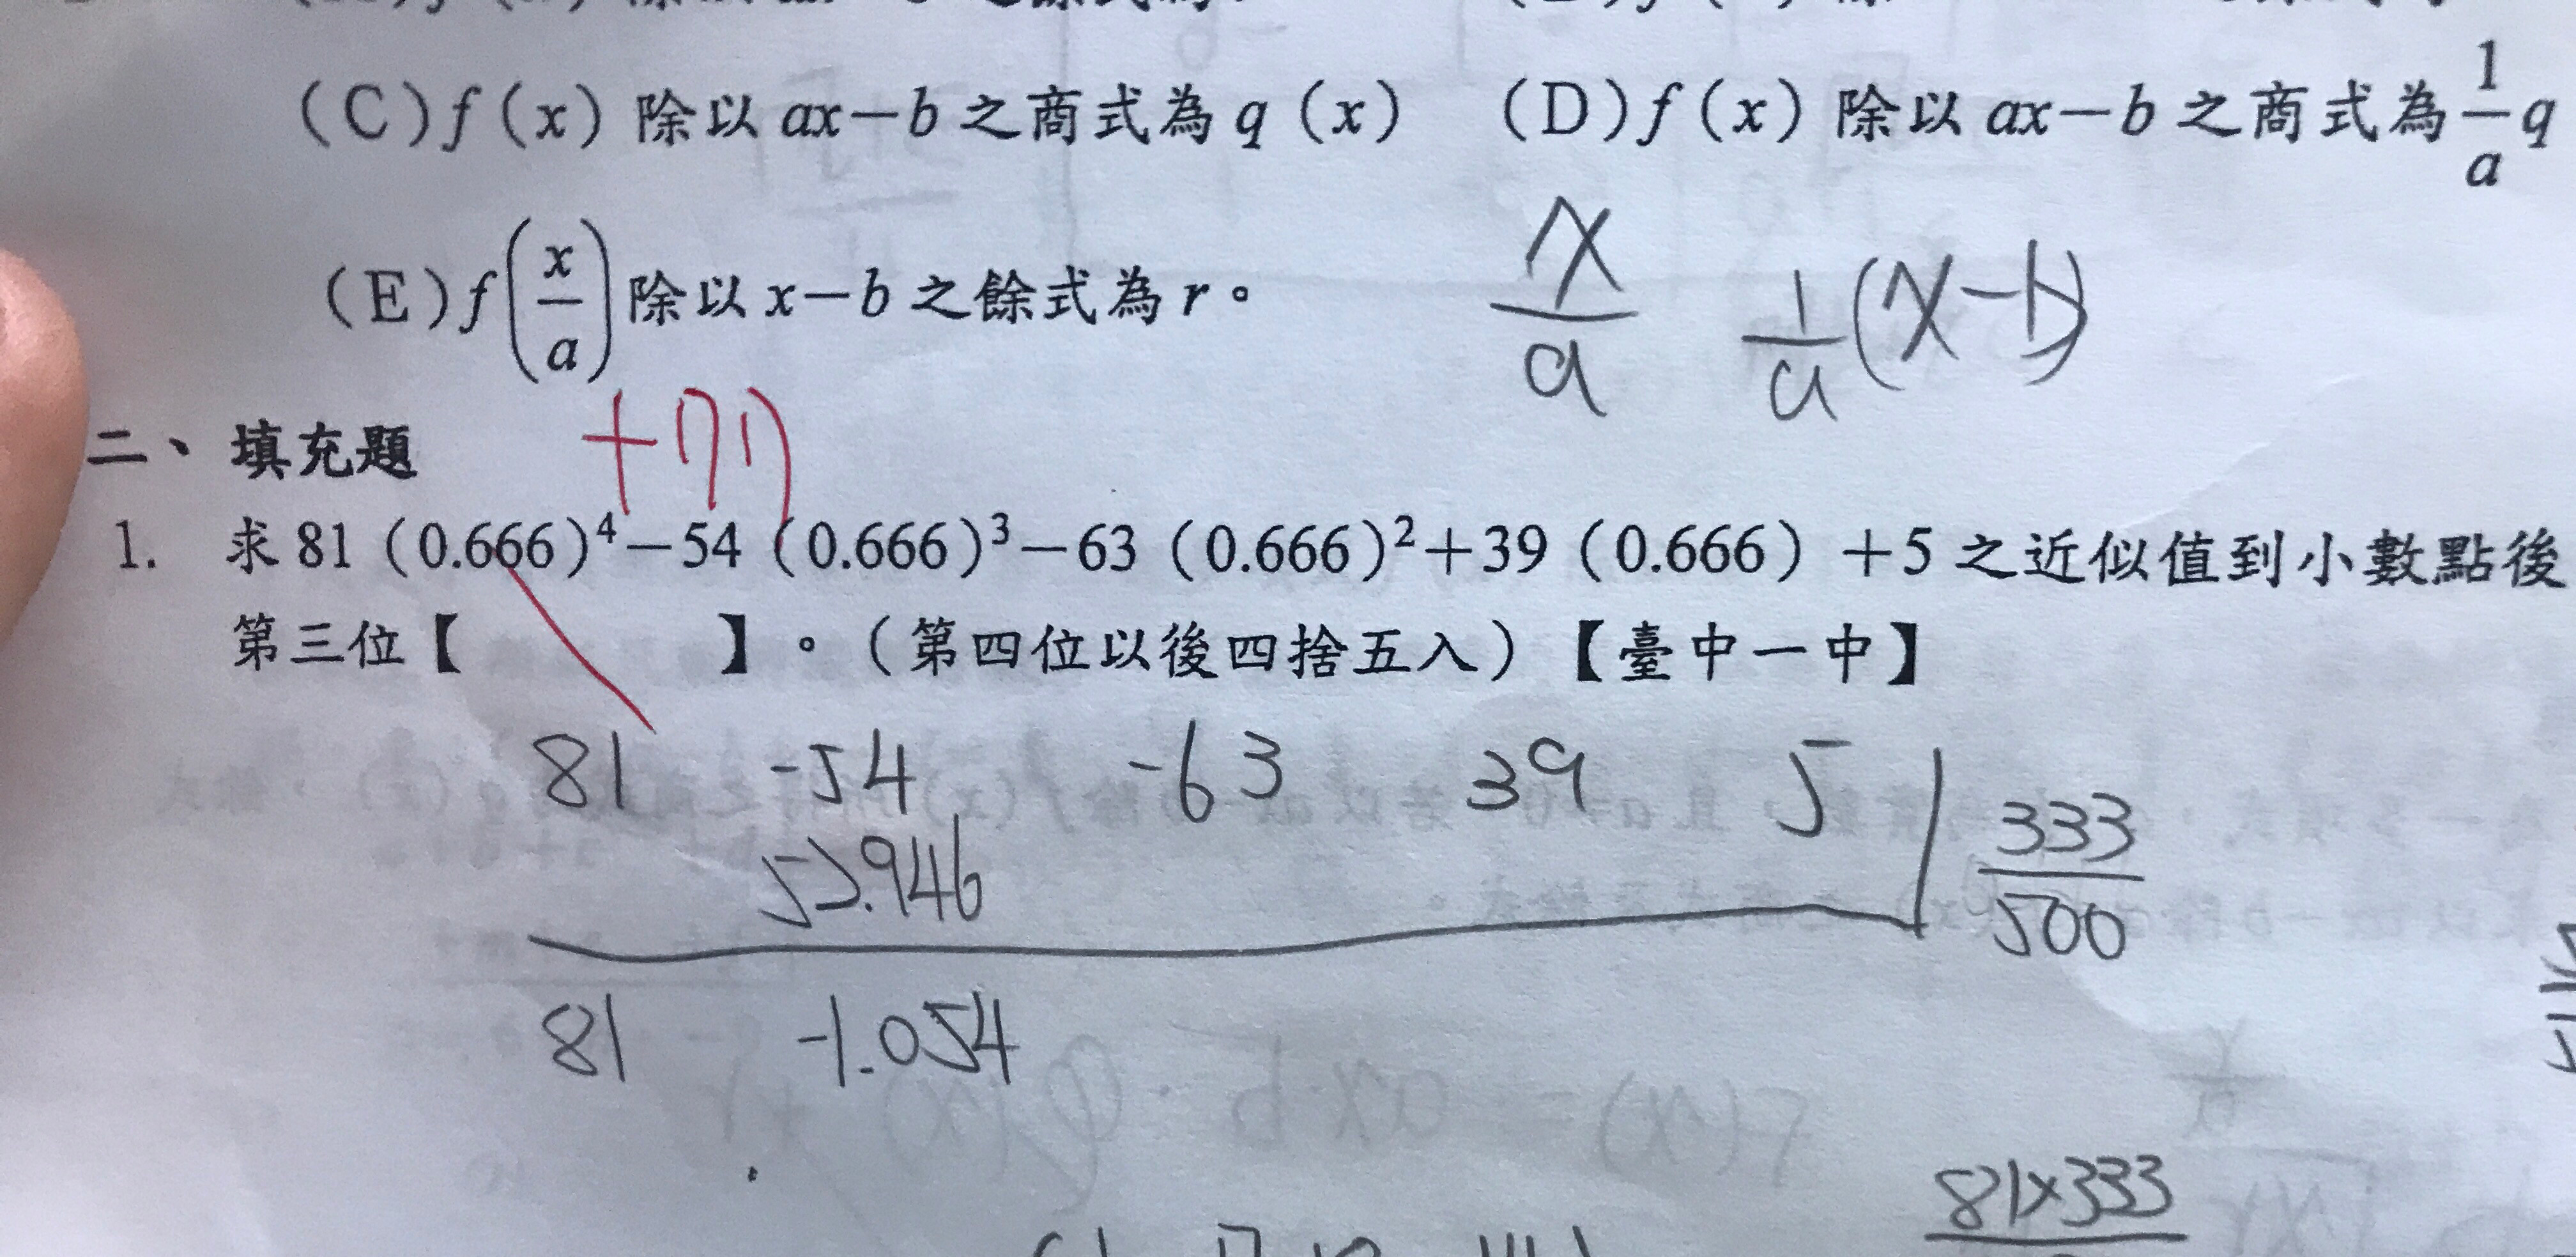 (C) f(x) 除以 ax－b 之商式為 q(x) (D) f(x) 除以 ax－b 之商式為 1/a q
(E) f(x/a) 除以 x－b 之餘式為 r。
x/a 1/a (x-b)
二、填充題
1. 求 81(0.666)⁴－54(0.666)³－63(0.666)²＋39(0.666)＋5 之近似值到小數點後
第三位【 】。(第四位以後四捨五入)【臺中一中】
81 -54 -63 39 5 333/500
81 -1.054
81×333